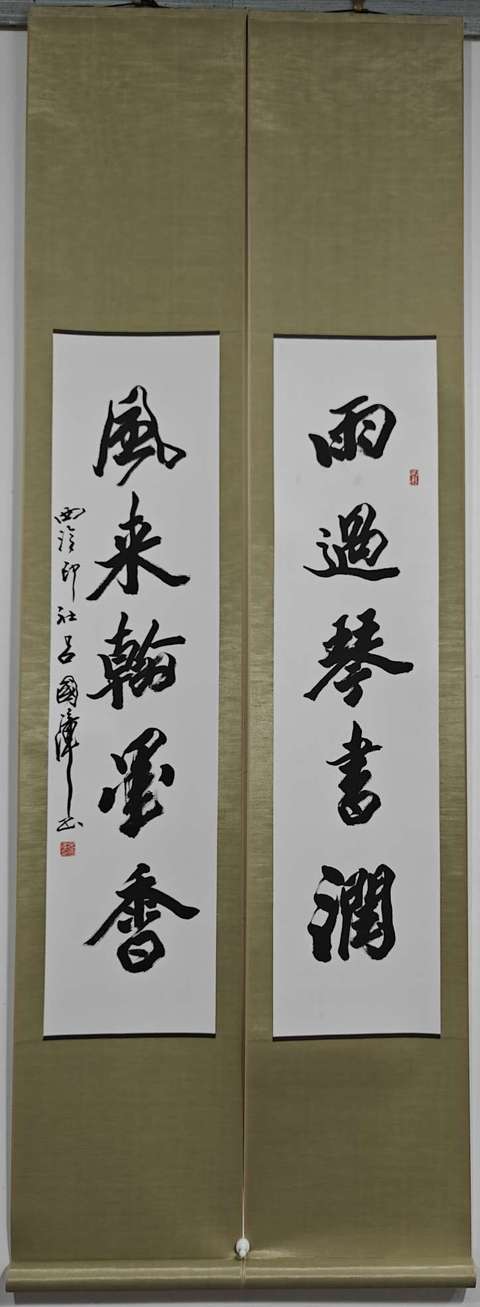 雨過琴書潤
風来翰墨香
西泠印社吕國璋书